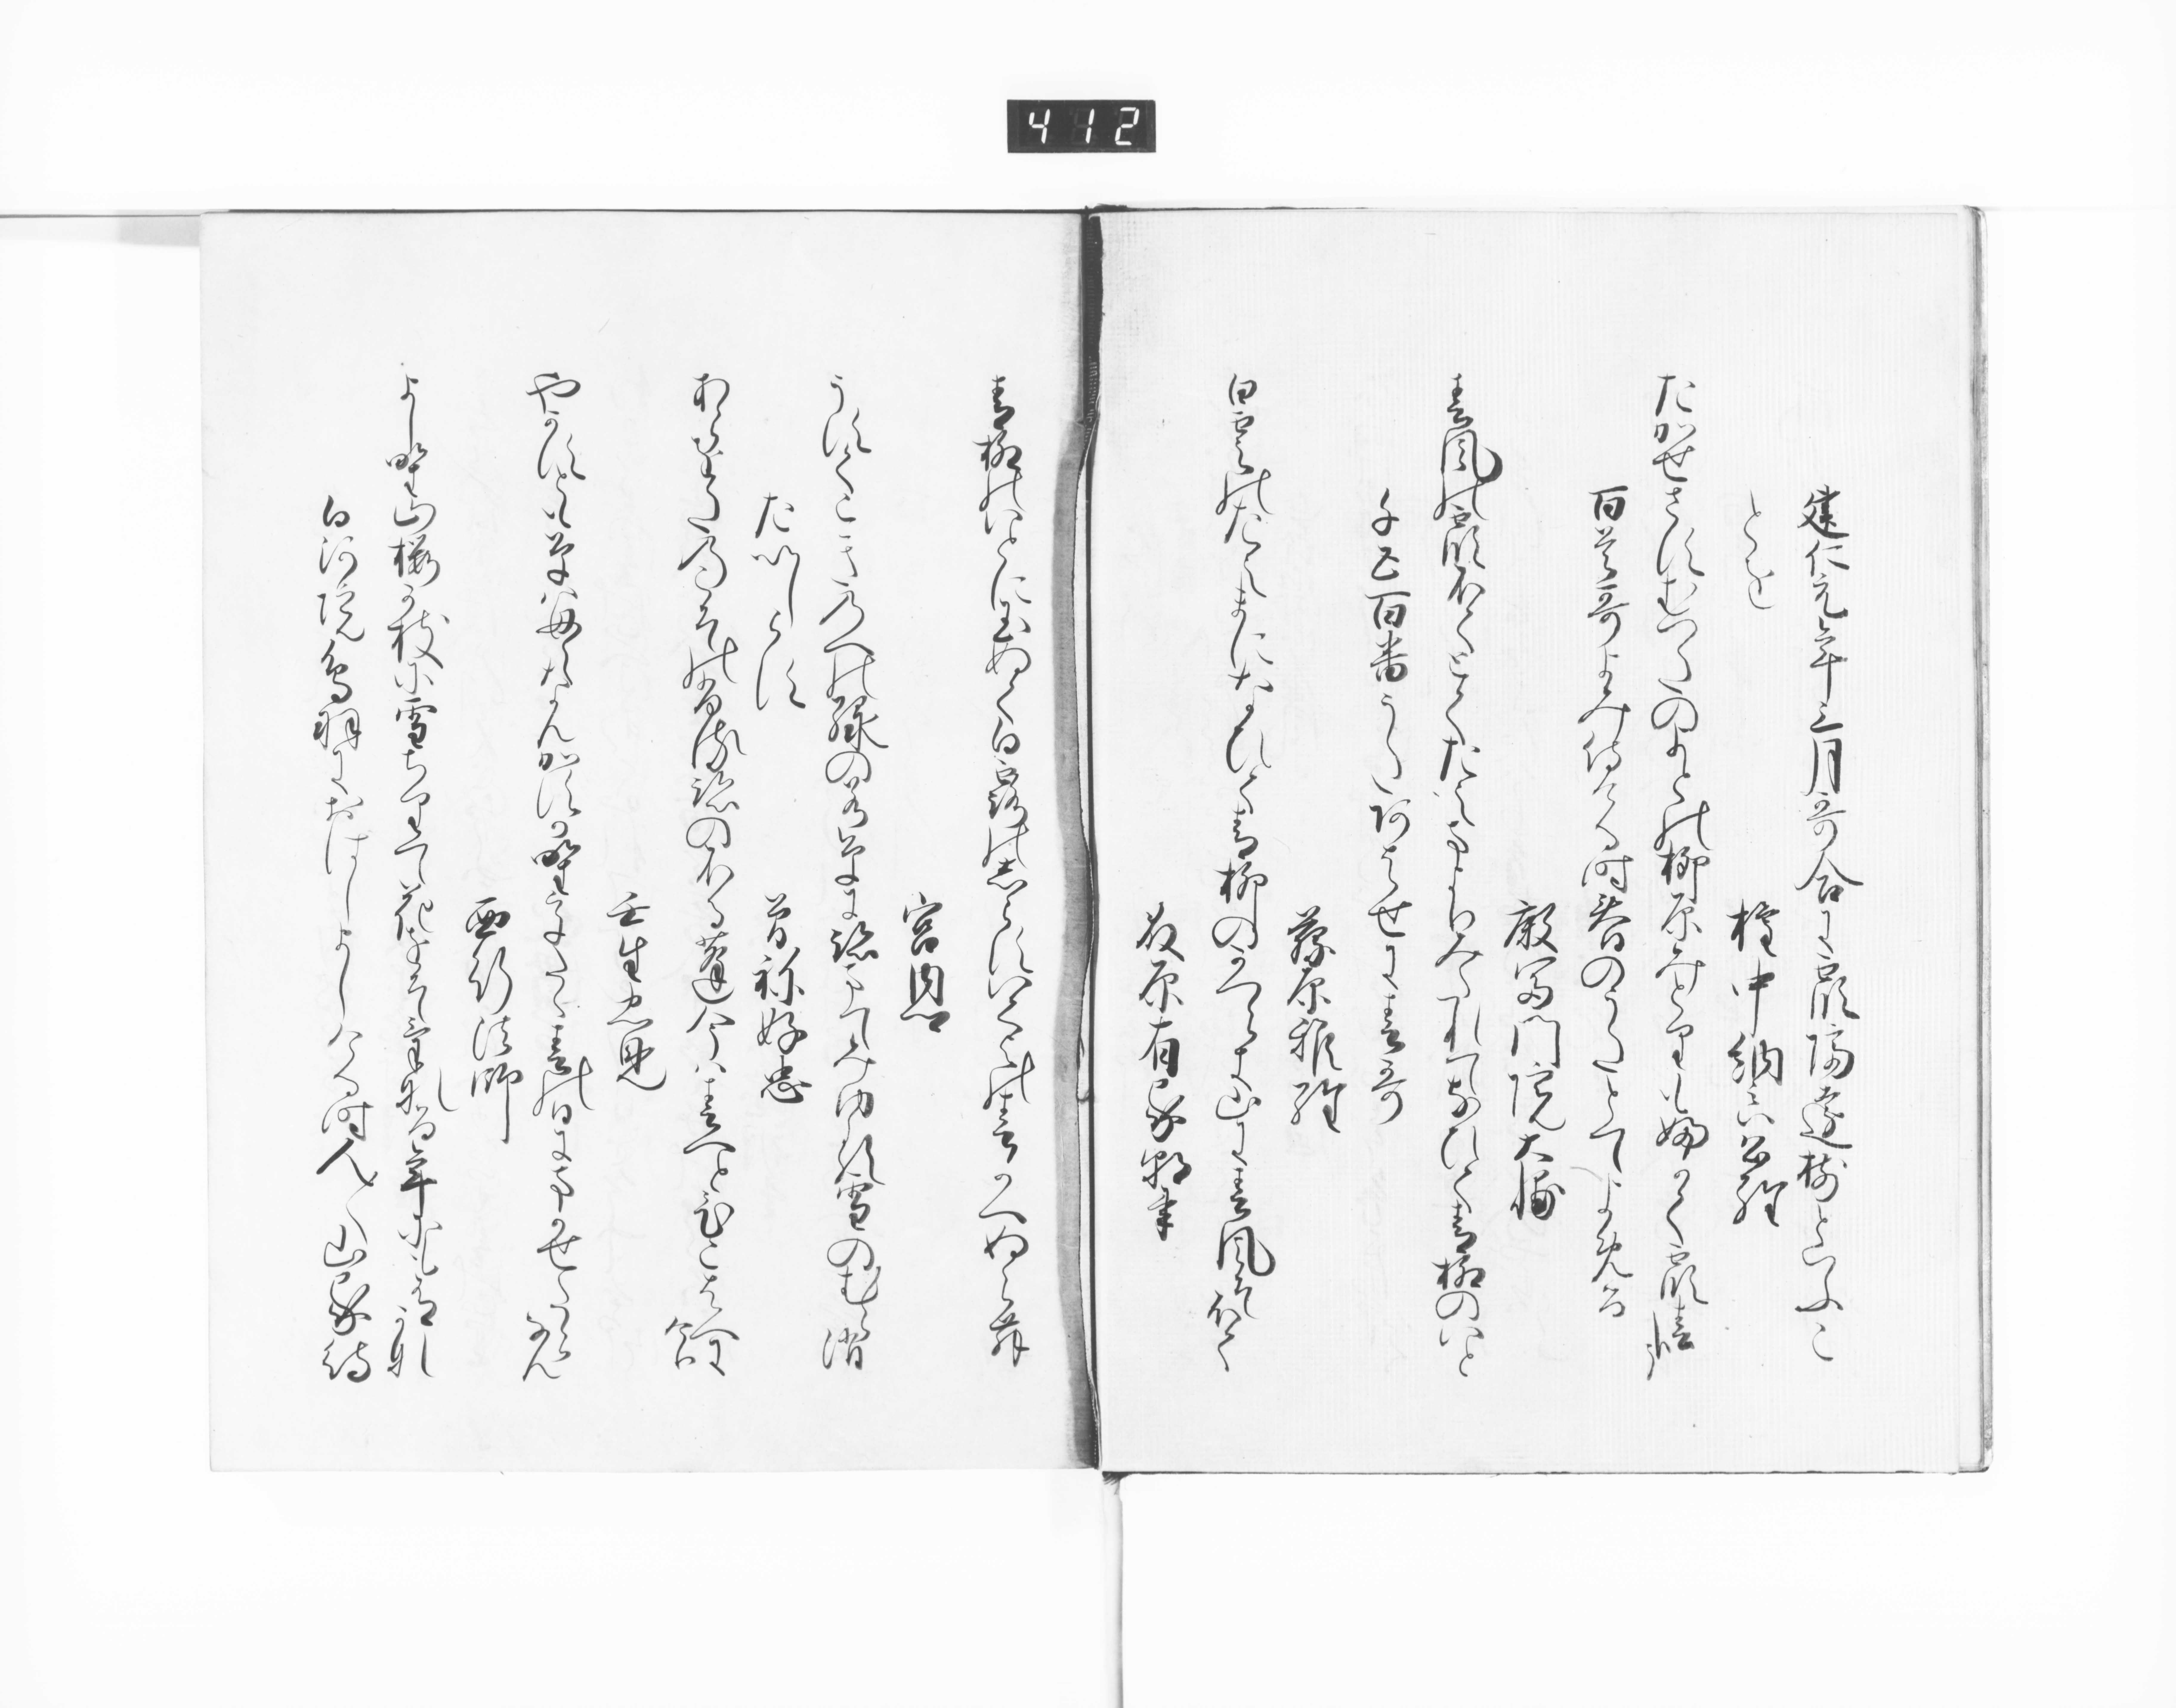 412
建仁元年三月哥合に霞隔遠樹といふこ
とを
権中納言公経
たかせさすむつたのよとの柳原みとりも婦かく霞春哉
百首哥よみ侍ける時春のうたとてよめる
殷富門院大輔
春風の霞ふくとくたえまよりみたれてなひく青柳のいと
千五百番うたあはせに春哥
藤原雅経
白雲のたえまになひく青柳のかつらき山に春風そ吹
藤原有家朝臣
青柳のいとに玉ぬく白露のしらすいくよの春かへぬらむ
宮内卿
うすくこきのへの緑の若草に跡まてみゆる雪のむら消
たいしらす
曽祢好忠
あらを田のこその古跡のふる蓬今は春へとひこはえにけり
壬生忠見
やかすとも草はもえなんかすか野をたゝ春の日にまかせたらなん
西行法師
よし野山桜か枝に雪ちりて花をそけなる年にもある哉
白河院鳥羽におはしましける時人々山家待